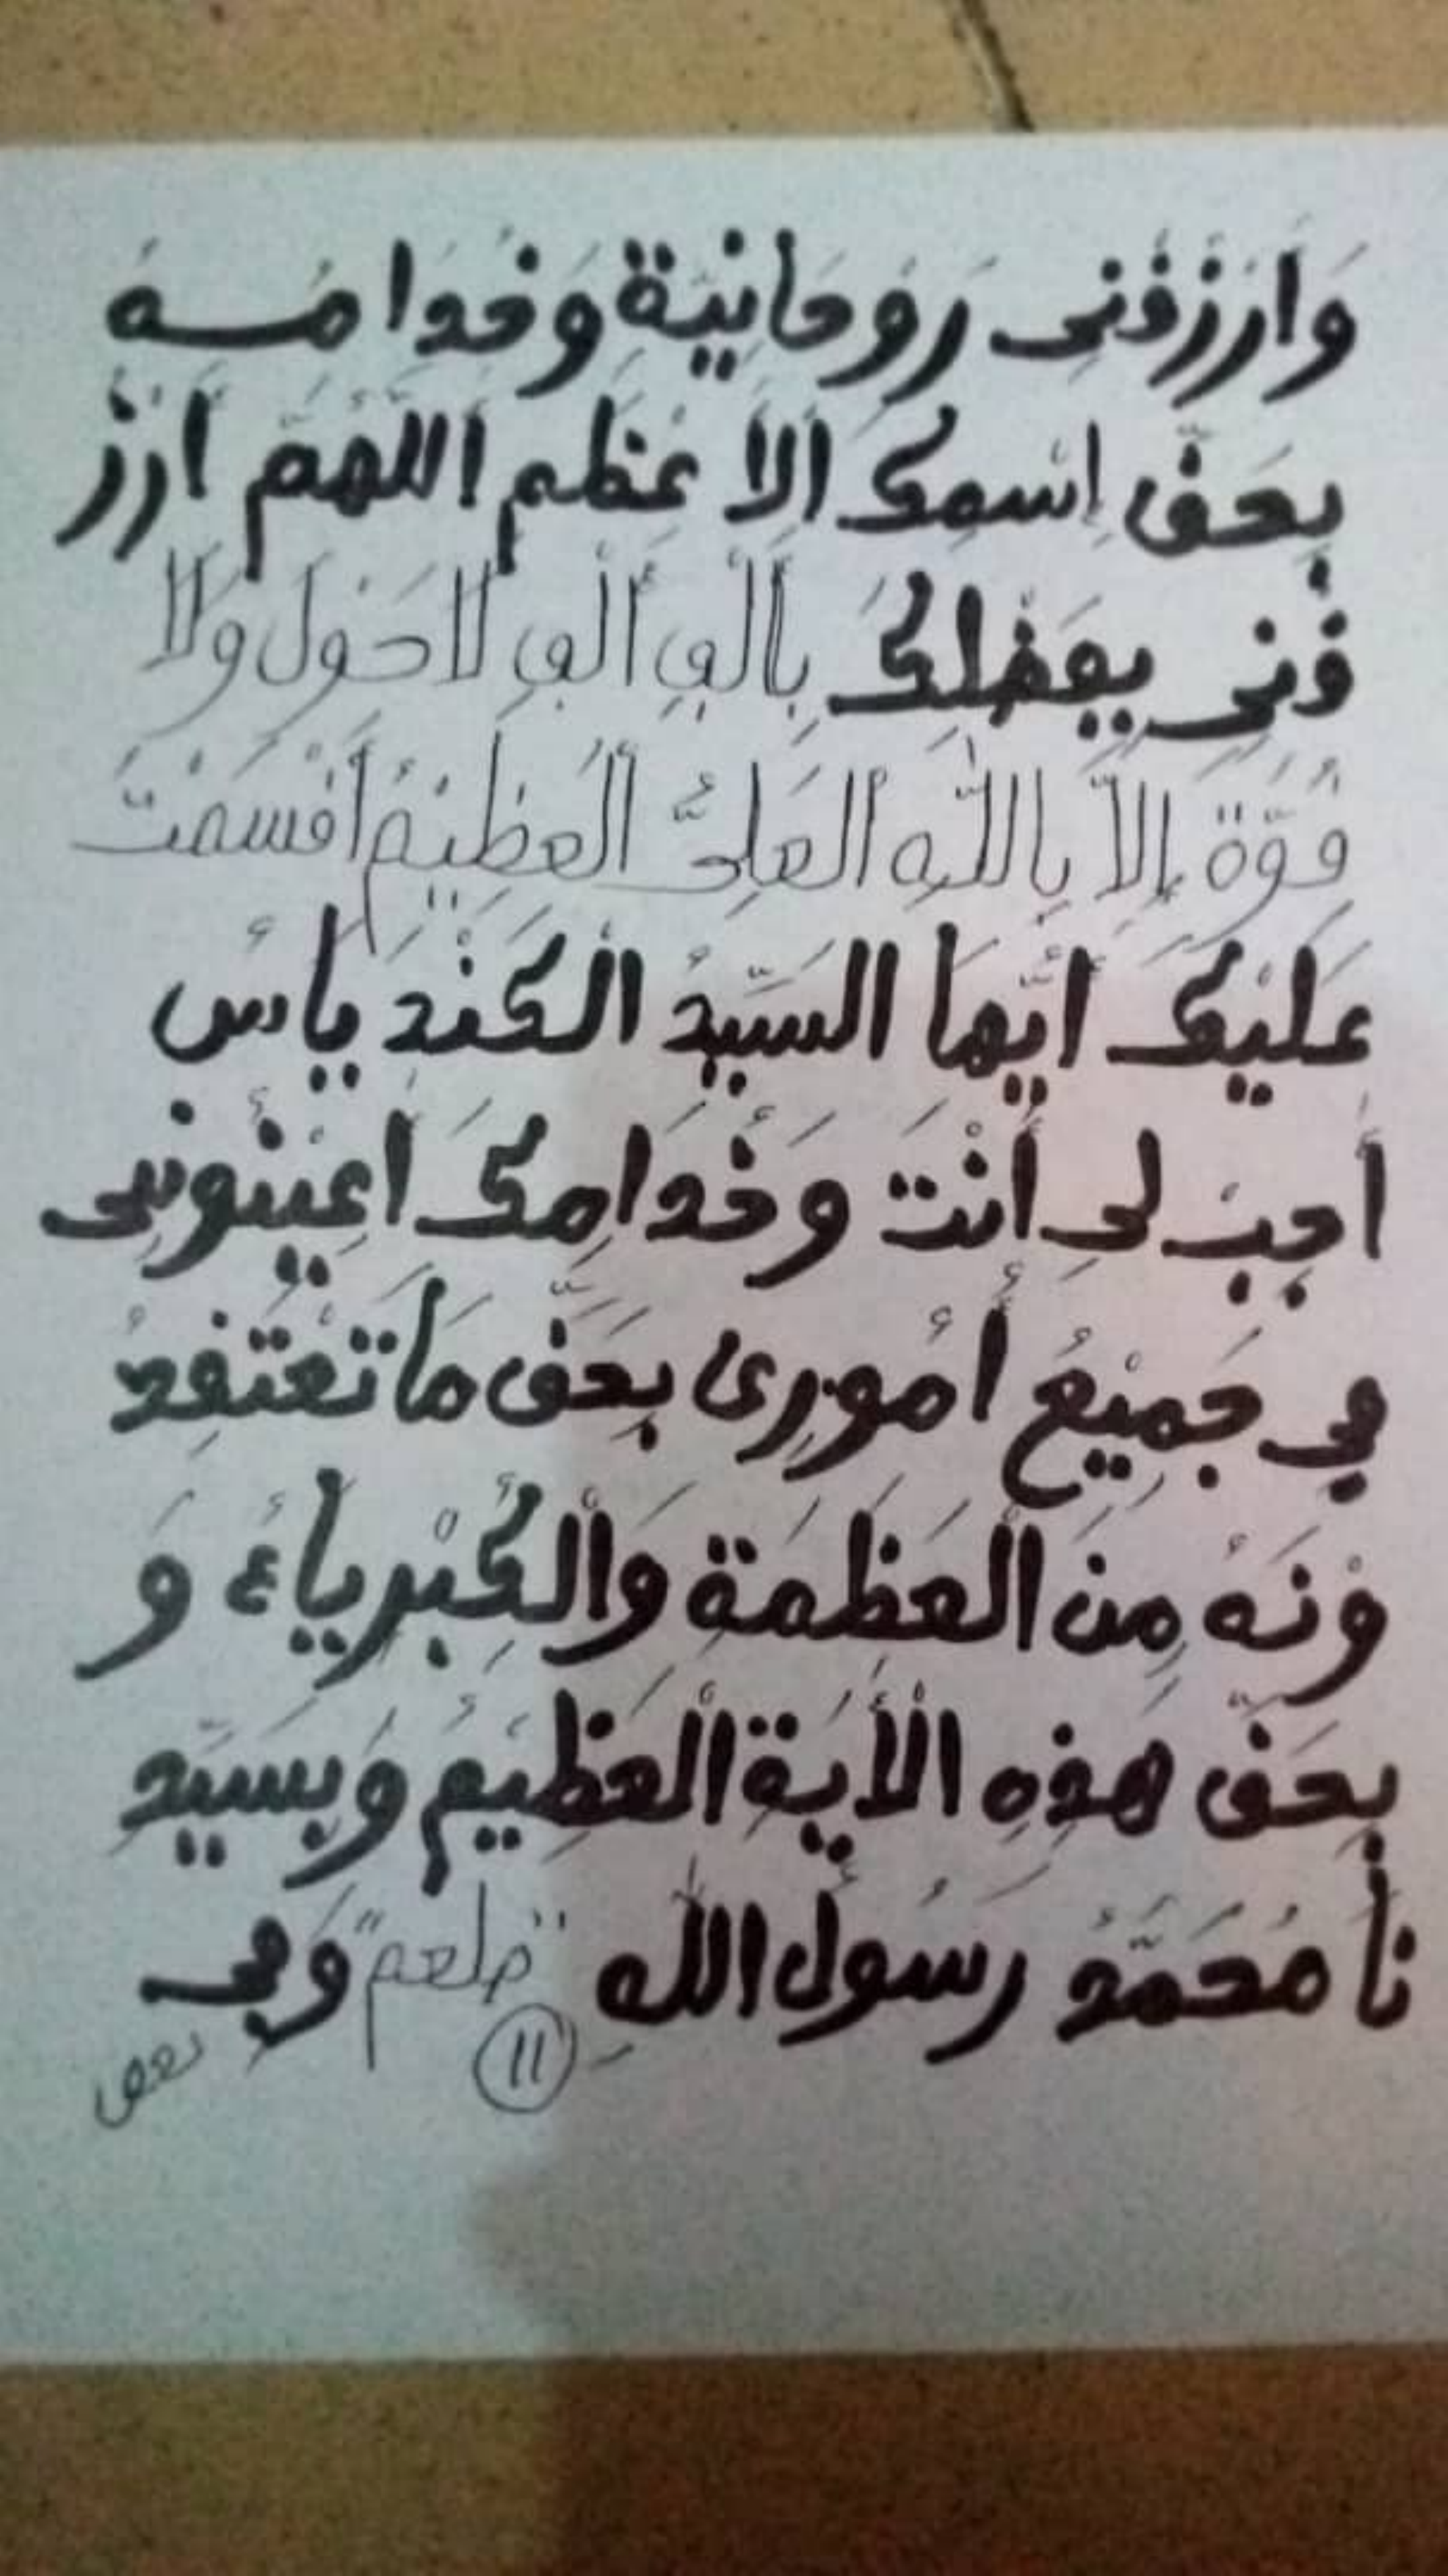 وَارْزُقْنِى رَوْحَانِيَّة وَخُدَامُـــهُ
بِحَقِّ اِسْمِكَ اَلاَعْظَم اَللهُمَّ اَرْزُ
قْنِى بِفَضْلِكَ بِأَلْفِ أَلْفِ لاَحَوْلَ وَلاَ
قُوَّةَ إِلاَّ بِاللّٰهِ الْعَلِىُّ الْعَظِيْمُ اَقْسَمْتُ
عَلَيْكَ اَيُّهَا السَّيِّدُ الْكَنْدِيَاسُ
أَجِبْ لِى أَنْتَ وَخُدَامِكَ اَعِيْنُونِى
فِى جَمِيْعُ أُمُورِى بِحَقِّ مَا تَعْتَقِدُ
وْنَهُ مِنَ الْعَظَمَةِ وَالْكِبْرِيَاءُ وَ
بِحَقِّ هٰذِهِ الْأَيَةِ الْعَظِيْمُ وَبِسَيِّدِ
نَا مُحَمَّدُ رَسُولُ اللهِ "صلعم" وَفِى
11